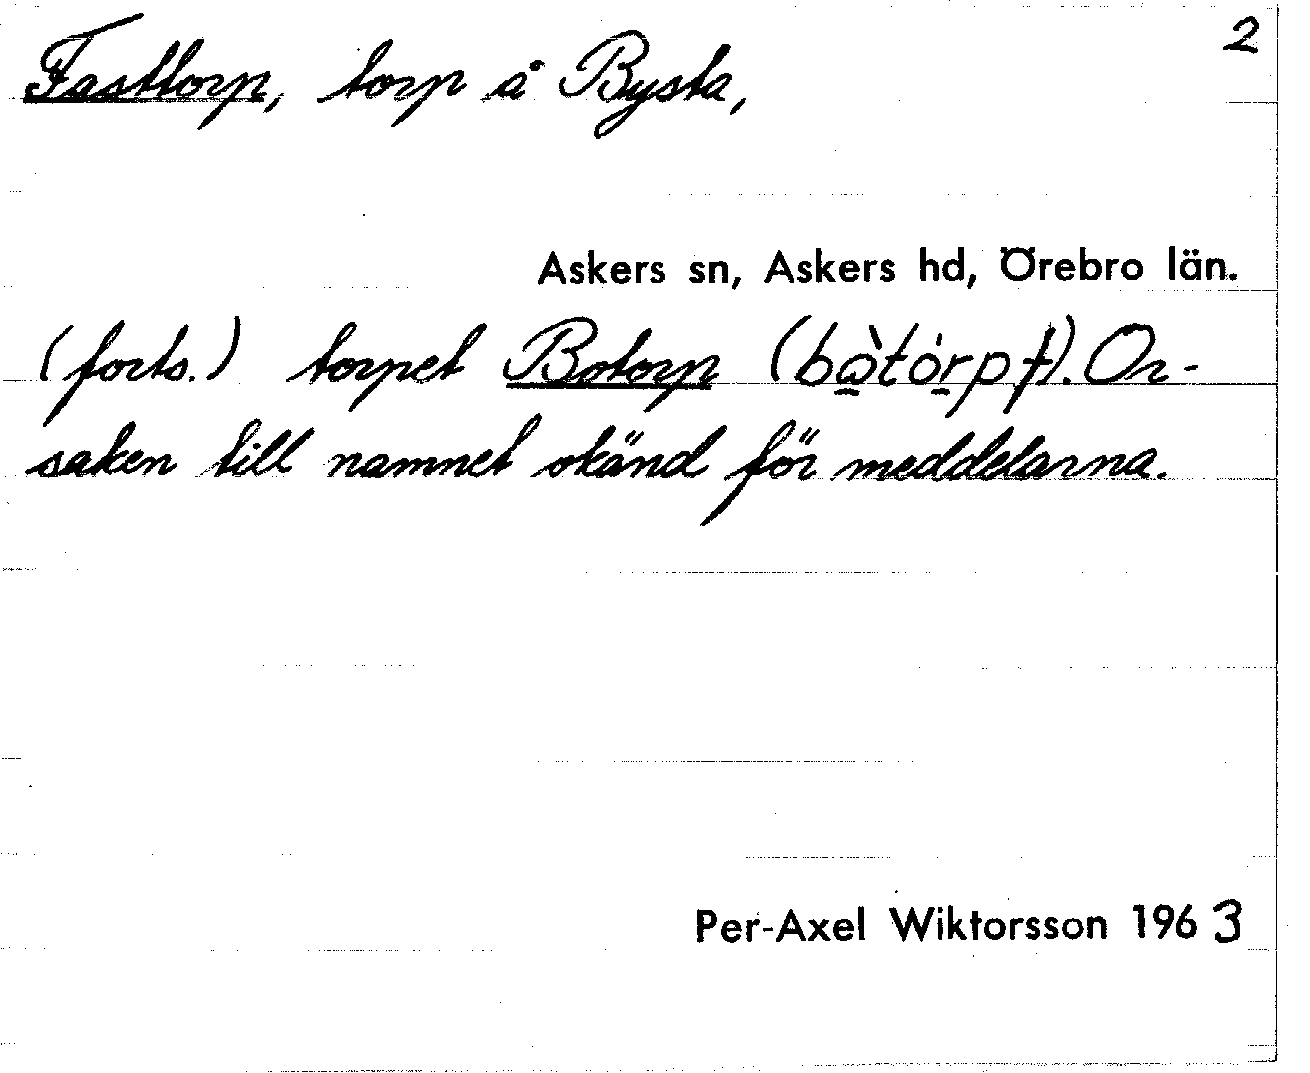 2
Fasttorp, torp å Bysta,
Askers sn, Askers hd, Örebro län.
(forts.) torpet Botorp ( ). Or-
saken till namnet okänd för meddelarna.
Per-Axel Wiktorsson 1963